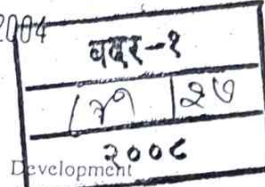 2004
बदर-१
२७
२००८
Development